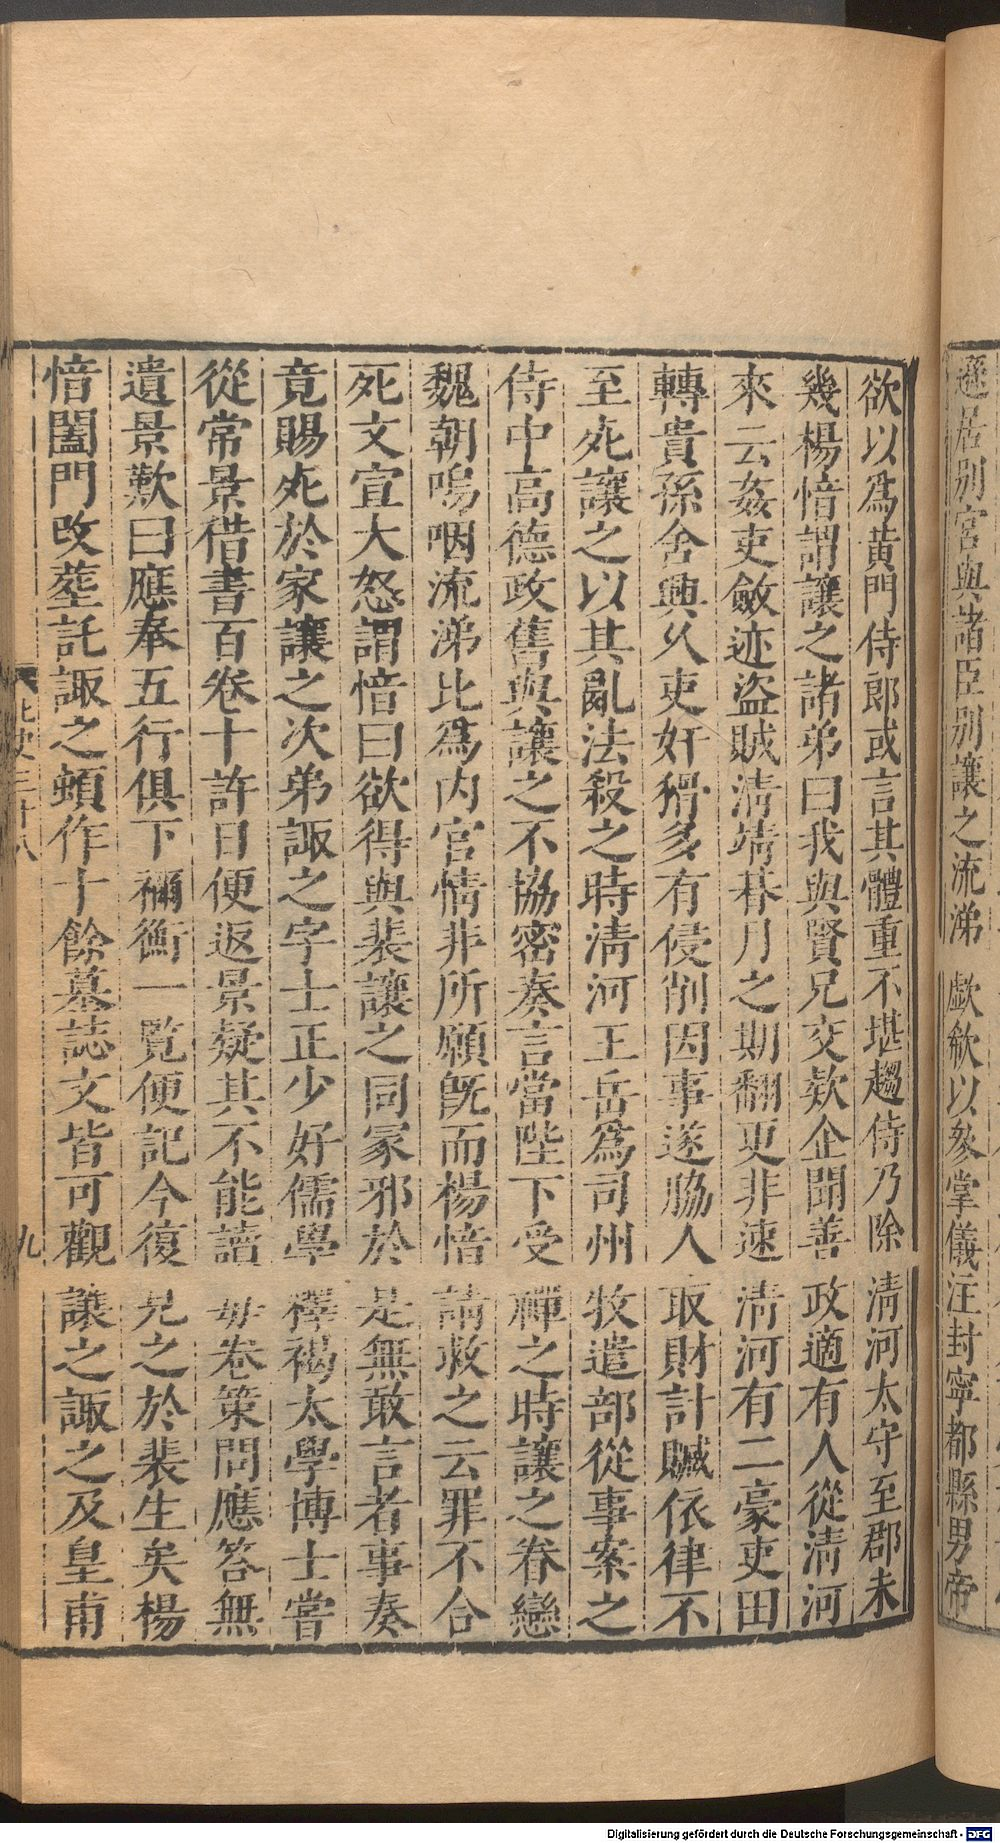 遜居別宮與諸臣別讓之流涕歔欷以參掌儀注封寧都縣男帝
欲以爲黃門侍郎或言其體重不堪趨侍乃除清河太守至郡未
幾楊愔謂讓之諸弟曰我與賢兄交欵企聞善政適有人從清河
來云姦吏斂迹盜賊清靖朞月之期翻更非速清河有二豪吏田
轉貴孫舍興乆吏奸猾多有侵削因事遂脇人取財計贓依律不
至死讓之以其亂法殺之時清河王岳爲司州牧遣部從事案之
侍中高德政舊與讓之不協密奏言當陛下受禪之時讓之眷戀
魏朝嗚咽流涕比爲內官情非所願旣而楊愔請救之云罪不合
死文宣大怒謂愔曰欲得與裴讓之同冢邪於是無敢言者事奏
竟賜死於家讓之次弟諏之字士正少好儒學釋褐太學博士嘗
從常景借書百卷十許日便返景疑其不能讀每卷策問應答無
遺景歎曰應奉五行俱下禰衡一覽便記今復見之於裴生矣楊
愔闔門改塟託諏之頓作十餘墓誌文皆可觀讓之諏之及皇甫
北史三十八
九
Digitalisierung gefördert durch die Deutsche Forschungsgemeinschaft - DFG